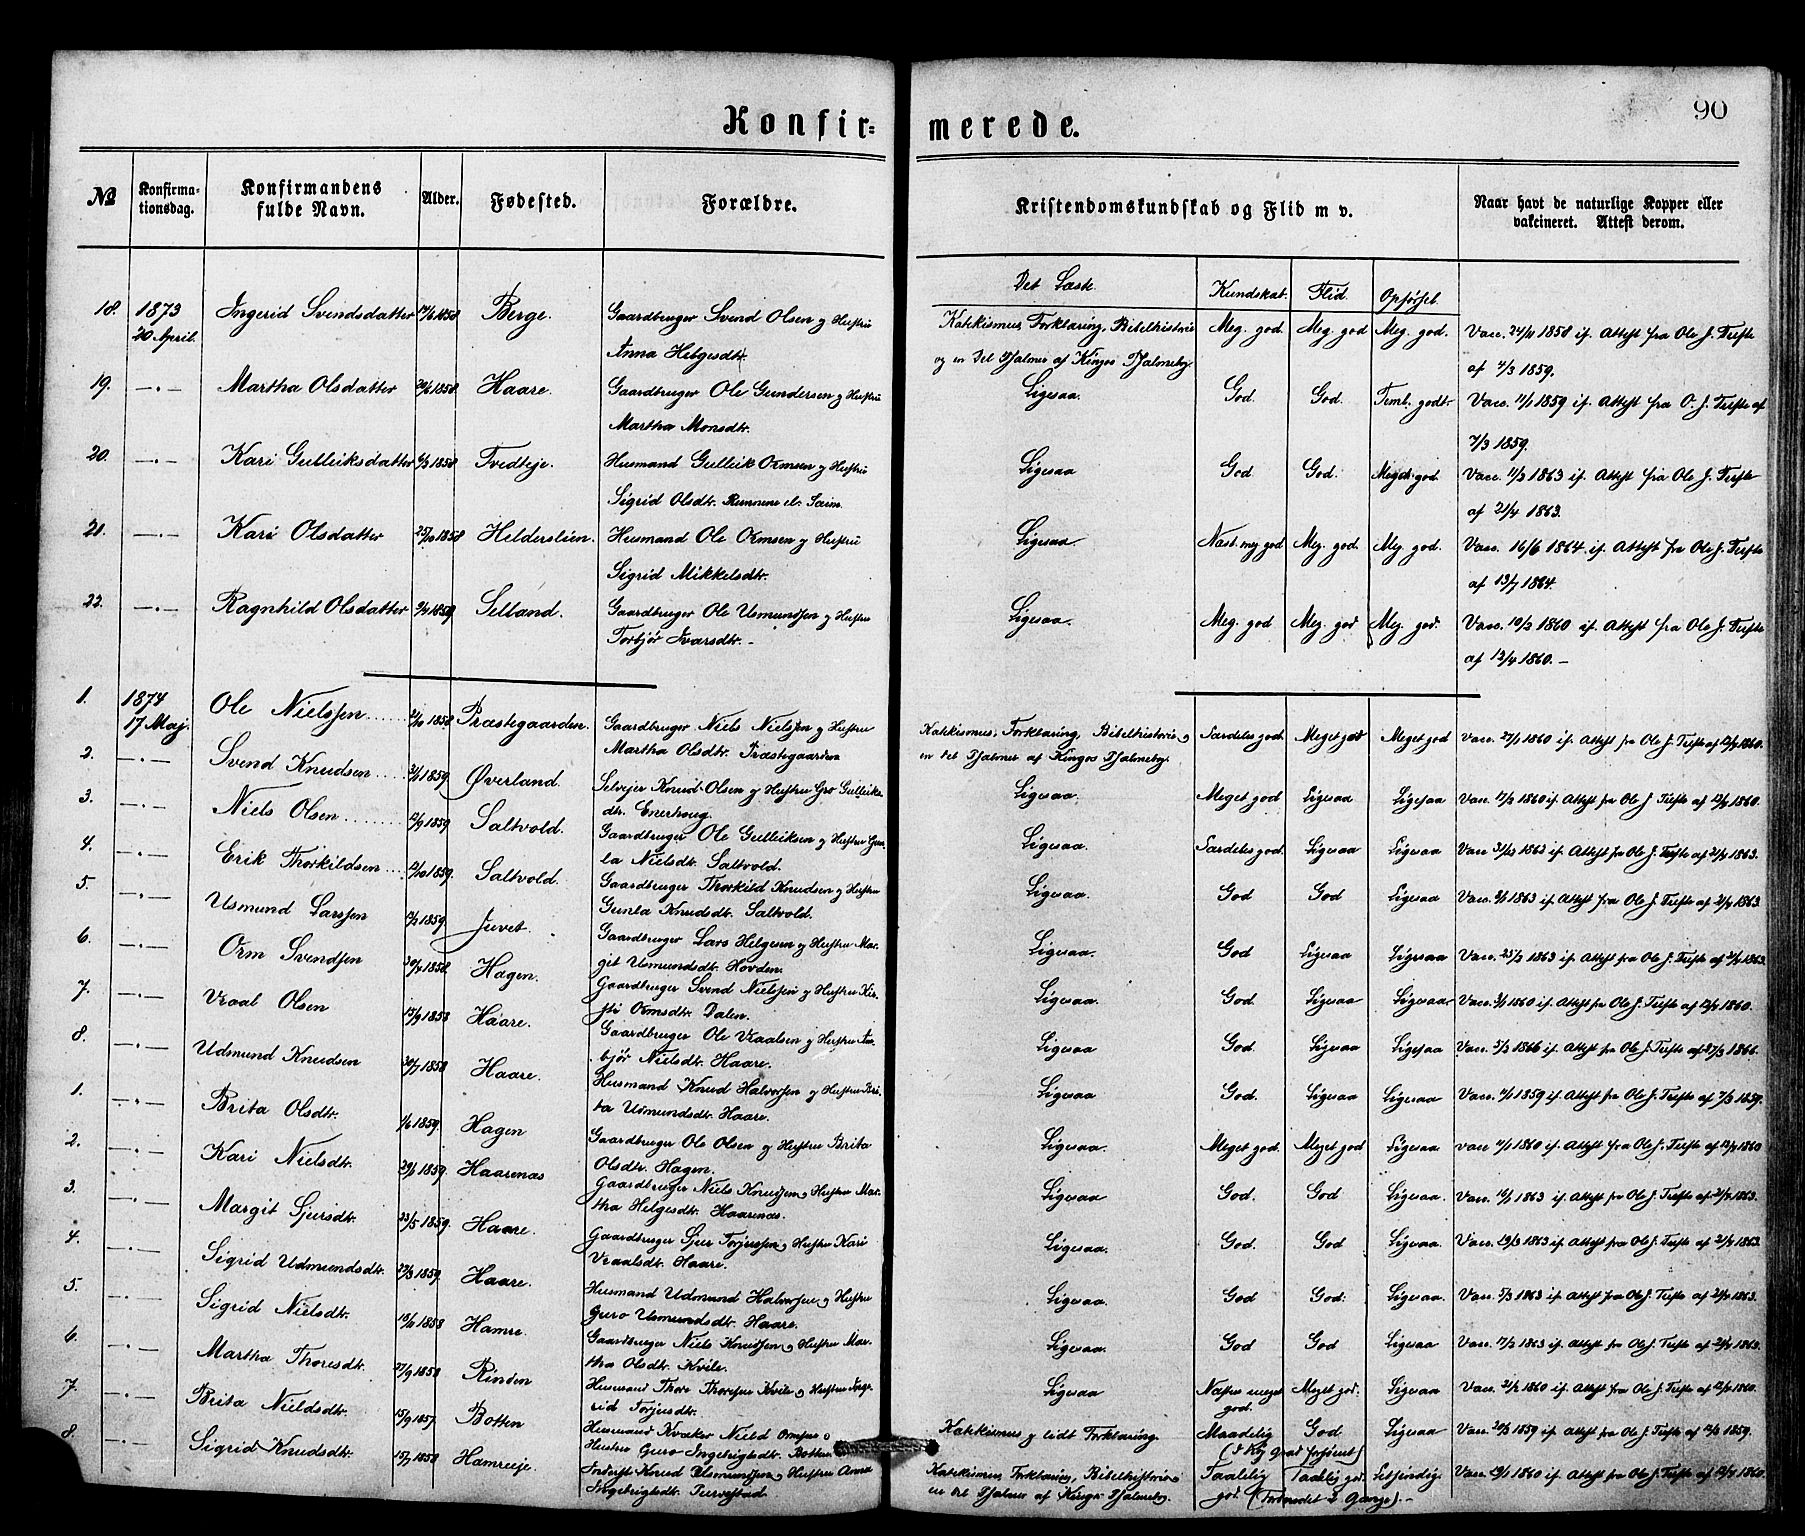 Konfir-
merede.
90
№
Konfirma-
tionsdag.
Konfirmandens
fulde Navn.
Alder.
Fødested.
Forældre.
Kristendomskundskab og Flid m v.
Naar havt de naturlige Kopper eller
vakcineret. Attest derom.
Det Læste. Kundskab. Flid. Opførsel.
18. 1873 Ingerid Svendsdatter 1858 Berge. Gaardbruger Svend Olsen og Hustru
20 April. Anna Helgesdtr.
Katekismus, Forklaring, Bibelhistorie Meg. god. Meg. god Meg. god. Vacc. 24/11 1858 if. Attest fra Ole J. Tufte
og en Del Psalmer af Kingos Psalmebg. af 1859.
19. —.— Martha Olsdatter 1858 Haare. Gaardbruger Ole Gundersen og Hustru
Martha Monsdtr.
Ligesaa. God. God. Teml. godt. Vacc. 1859 if. Attest fra O. J. Tufte af
7/3 1859.
20. —.— Kari Gulleiksdatter 1858 Tvedteje. Husmand Gulleik Ormsen og Hustru
Sigrid Olsdtr.
Ligesaa God God. Meget god. Vacc. 1863 if. Attest fra Ole J. Tufte
af 21/4 1863.
21. —.— Kari Olsdatter 1858 Helderslien. Husmand Ole Ormsen og Hustru
Sigrid Mikkelsdtr.
Ligesaa. Næst. meg god Meg. god. Meg. god. Vacc. 16/6 1864 if. Attest fra Ole J. Tufte
af 13/7 1864.
22. —.— Ragnhild Olsdatter 1859 Selland. Gaardbruger Ole Usmundsen og Hustru
Torbjør Ivarsdtr.—
Ligesaa. Meg. god Meg. god Meg. god. Vacc. 1860 if. Attest fra Ole J. Tufte
af 12/4 1860.—
1. 1874 Ole Nielssen 1858 Præstegaarden. Gaardbruger Niels Nielssen og Hustru
17 Maj. Martha Olsdtr. Præstegaarden
Katekismus, Forklaring, Bibelhistorie og Særdeles god. Meget godt Meget god Vacc. 1860 if. Attest fra Ole J. Tufte af 12/4 1860.
en Del Psalmer af Kingos Psalmebg.
2. —.— Svend Knudsen 1859 Øverland. Selvejer Knud Olsen og Hustru Gro Gulleiks-
dtr. Enerhoug.
Ligesaa. Meget god Ligesaa Ligesaa Vacc. 1860 if. Attest fra Ole J. Tufte af 12/4 1860.
3. —.— Niels Olsen 1859 Saltvold. Gaardbruger Ole Gulleiksen og Hustru Gun-
la Nielsdtr. Saltvold.
Ligesaa. Særdeles god. Ligesaa Ligesaa Vacc. 1863 if. Attest fra Ole J. Tufte af 21/4 1863.
4. —.— Erik Thorkildsen 1859. Saltvold. Gaardbruger Thorkild Knudsen og Hustru
Gunla Knudsdtr. Saltvold.
Ligesaa. God God Ligesaa Vacc. 1863 if. Attest fra Ole J. Tufte af 21/4 1863.
5. —.— Usmund Larssen 1859 Juvet. Gaardbruger Lars Helgesen og Hustru Mar-
git Usmundsdtr. Hovden.
Ligesaa. God Ligesaa Ligesaa Vacc. 1863 if. Attest fra Ole J. Tufte af 21/4 1863.
6. —.— Orm Svendsen 1858. Hagen. Gaardbruger Svend Nielssen og Hustru Kir-
sti Ormsdtr. Dalen.
Ligesaa. God. Ligesaa Ligesaa Vacc. 1860 if. Attest fra Ole J. Tufte af 12/4 1860.
7. —.— Vraal Olsen 1858 Haare. Gaardbruger Ole Vraalsen og Hustru Tor-
bjør Nielsdtr. Haare.
Ligesaa God. Ligesaa Ligesaa Vacc. 1866 if. Attest fra Ole J. Tufte af 1866.
8. —.— Udmund Knudsen 1858 Haare. Husmand Knud Halvorsen og Hustru Bri-
ta Usmundsdtr. Haare.
Ligesaa God. Ligesaa Ligesaa Vacc. 1859 if. Attest fra Ole J. Tufte af 7/3 1859.
1. —.— Brita Olsdtr. 1/6 1859. Hagen Gaardbruger Ole Olsen og Hustru Brita
Olsdtr. Hagen.
Ligesaa Meget god. Meget god Ligesaa. Vacc. 1860 if. Attest fra Ole J. Tufte af 12/4 1860
2. —.— Kari Nielsdtr. 1859. Haarenæs Gaardbruger Niels Knudsen og Hustru Mar-
tha Helgesdtr. Haarenæs.
Ligesaa God. God Ligesaa. Vacc. 1863 if. Attest fra Ole J. Tufte af 21/4 1863.
3. —.— Margit Sjursdtr. 23/5 1859. Haare. Gaardbruger Sjur Torjussen og Hustru Kari
Vraalsdtr. Haare.
Ligesaa. God. God Ligesaa. Vacc. 1863 if. Attest fra Ole J. Tufte af 21/4 1863.
4. —.— Sigrid Udmundsdtr. 1859. Haare. Husmand Udmund Halvorsen og Hustru
Guro Usmundsdtr. Haare.
Ligesaa. God God. Ligesaa. Vacc. 1863 if. Attest fra Ole J. Tufte af 21/4 1863.
5. —.— Sigrid Nielsdtr. 1858 Hamre. Gaardbruger Niels Knudsen og Hustru Mar-
tha Olsdtr. Kvile.
Ligesaa. God God Ligesaa Vacc. 1863 if. Attest fra Ole J. Tufte af 21/4 1863.
6. —.— Martha Thoresdtr. 27/9 1858 Rinden Husmand Thore Thoresen Kvile og Hustru Inge-
rid Torjusdtr.
Ligesaa Næsten meget Meget god. Ligesaa Vacc. 1860 if. Attest fra Ole J. Tufte af 12/4 1860.
god.
7. —.— Brita Nieldsdtr. 15/9 1857. Botten Husmand Kvæker Nield Ormsen og
Hustru Guro Ingebrigtsdtr. Botten
Katekismus og lidt Forklaring. Maadelig God Ligesaa Vacc. 1859 if. Attest fra Ole J. Tufte af 1859.
8. —.— Sigrid Knudsdtr. 1858 Hamreeje. Inderst Knud Usmundsen og Hustru Anne
Ingebrigtsdtr.
Katekismus, Forklaring, Bibelhistorie og Taalelig Taalelig god. Vacc. 1860 if. Attest fra Ole J. Tufte af 12/4 1860.
en Del Psalmer af Kingos Psalmebg. god.